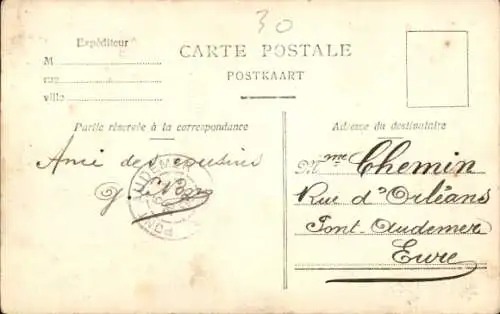 30
Expéditeur
M
rue
ville
CARTE POSTALE
POSTKAART
Partie réservée à la correspondance
Adresse du destinataire
Amé de cousins
PONT-AUDEMER
Mme Chemin
Rue d'Orléans
Pont-Audemer
Eure